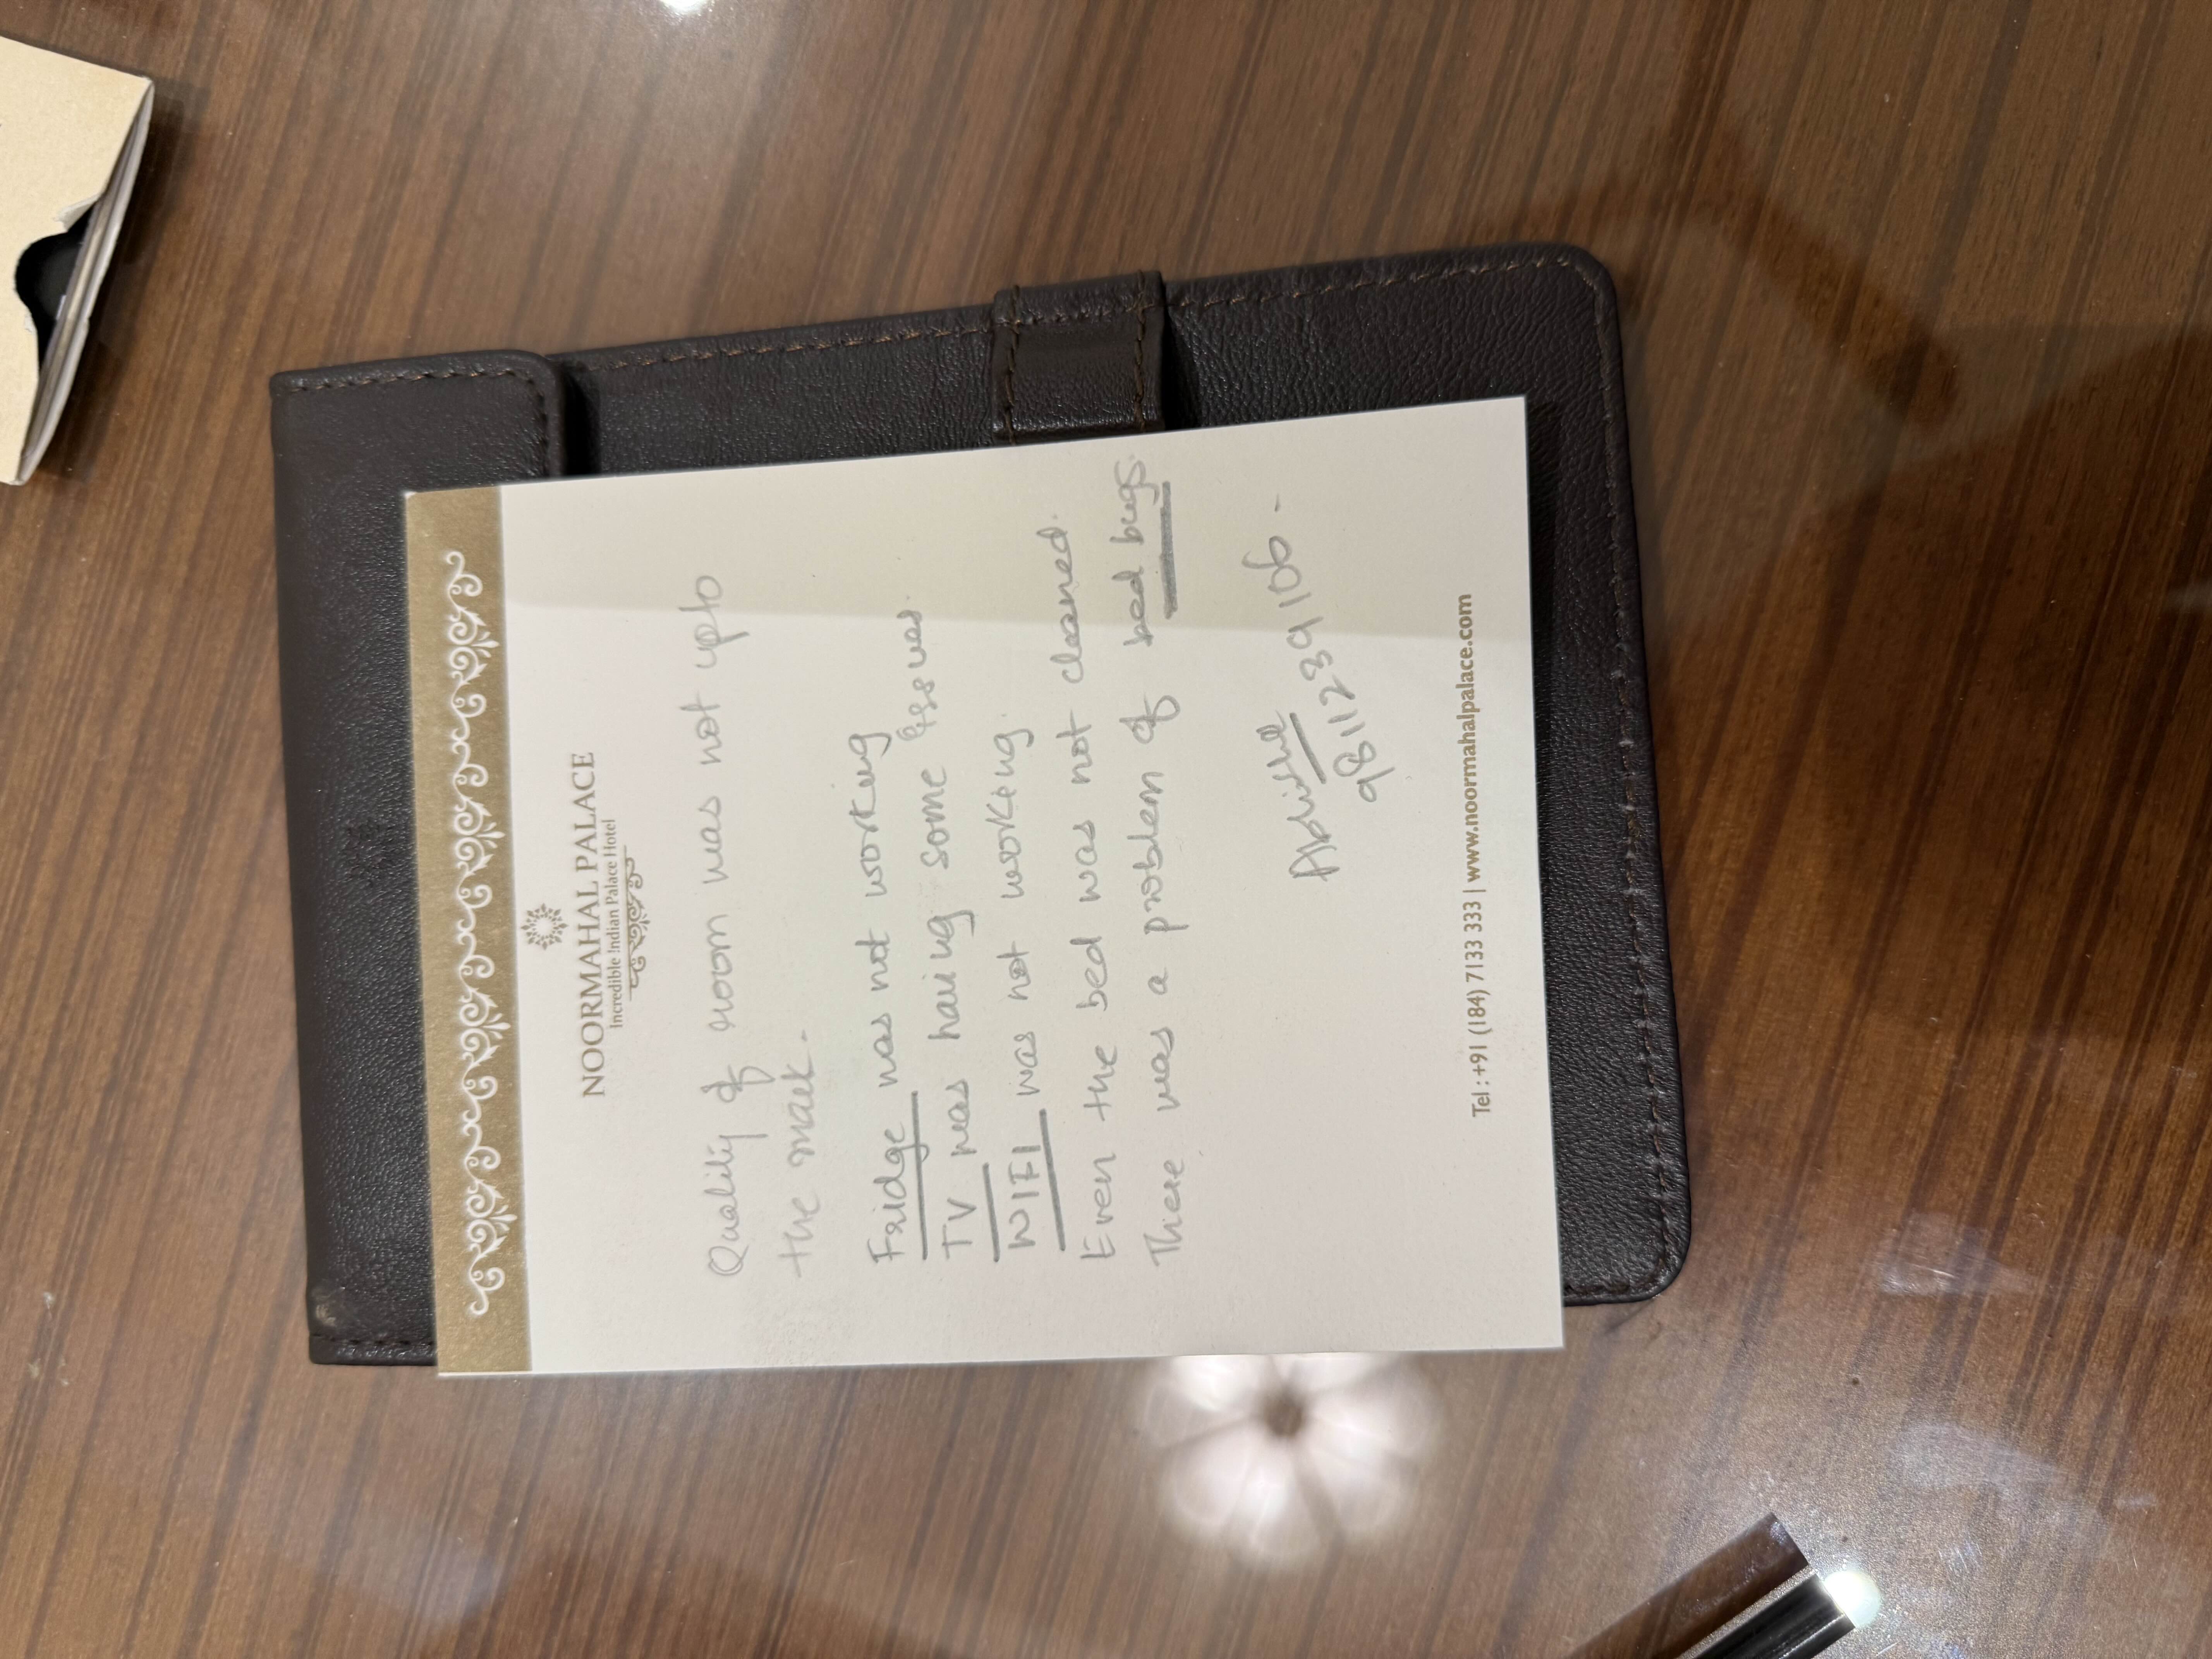 NOORMAHAL PALACE
Incredible Indian Palace Hotel
Quality of room was not upto
the mark.
Fridge was not working
TV was having some issues.
WIFI was not working
Even the bed was not cleaned.
There was a problem of bed bugs.
9811239106
Tel : +91 (184) 7133 333 | www.noormahalpalace.com